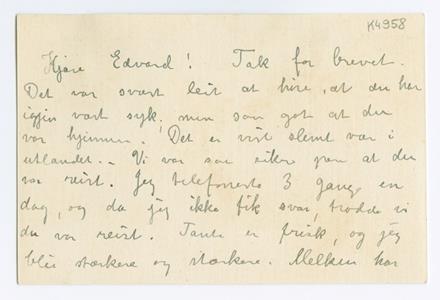 K4958
Kjære Edvard! Tak for brevet.
Det var svært leit at høre, at du har
igjen vært syk, men saa got at du
var hjemme. Det er vist slemt vær i
utlandet. – Vi var saa sikre paa at du
var reist. Jeg telefonerte 3 gange en
dag, og da jeg ikke fik svar, trodde vi
du var reist. Tante er frisk, og jeg
blir stærkere og stærkere. Melken har